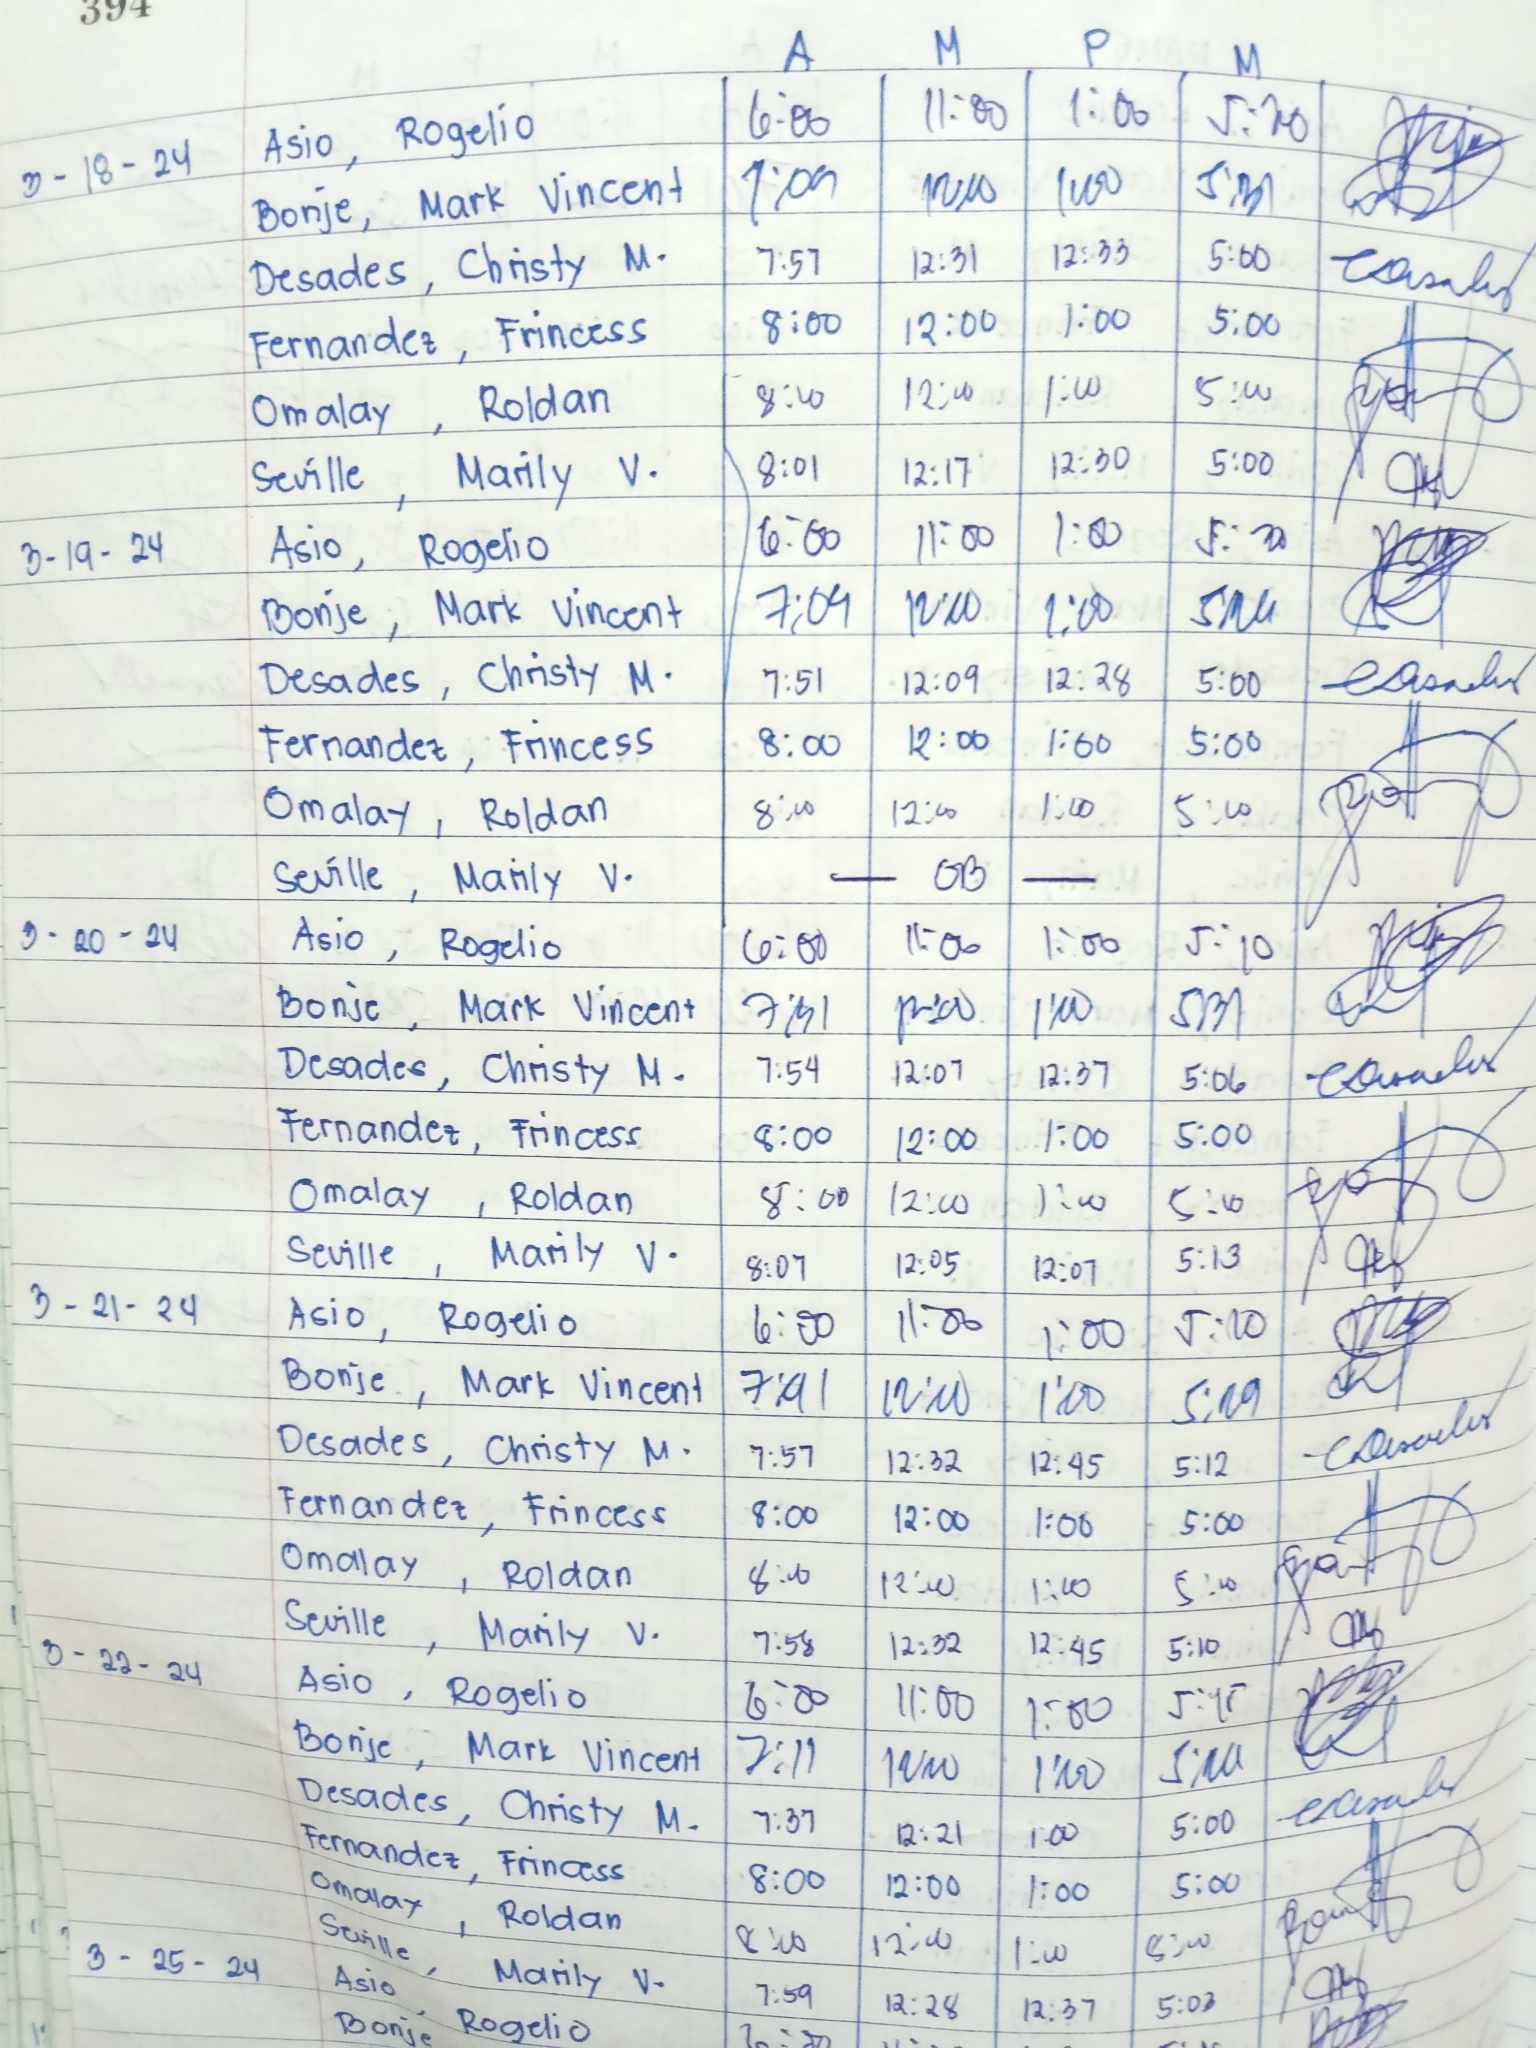 394
A M P M
3-18-24 Asio, Rogelio 6:00 11:00 1:00 5:20
Bonje, Mark Vincent 7:09 12:00 1:00 5:31
Desades, Christy M. 7:57 12:31 12:33 5:00
Fernandez, Frincess 8:00 12:00 1:00 5:00
Omalay, Roldan 8:00 12:00 1:00 5:00
Seville, Marily V. 8:01 12:17 12:30 5:00
3-19-24 Asio, Rogelio 6:00 11:00 1:00
Bonje, Mark Vincent 7:09 12:00 1:00
Desades, Christy M. 7:51 12:09 12:28 5:00
Fernandez, Frincess 8:00 12:00 1:00 5:00
Omalay, Roldan 8:00 12:00 1:00 5:00
Seville, Marily V. — OB —
3-20-24 Asio, Rogelio 6:00 11:00 1:00 5:10
Bonje, Mark Vincent 7:31 12:00 1:00 5:31
Desades, Christy M. 7:54 12:07 12:37 5:06
Fernandez, Frincess 8:00 12:00 1:00 5:00
Omalay, Roldan 8:00 12:00 1:00 5:00
Seville, Marily V. 8:07 12:05 12:07 5:13
3-21-24 Asio, Rogelio 6:00 11:00 1:00 5:20
Bonje, Mark Vincent 12:00 1:00 5:29
Desades, Christy M. 7:57 12:32 12:45 5:12
Fernandez, Frincess 8:00 12:00 1:00 5:00
Omalay, Roldan 8:00 12:00 1:00 5:00
Seville, Marily V. 7:58 12:32 12:45 5:10
3-22-24 Asio, Rogelio 6:00 11:00 1:00 5:15
Bonje, Mark Vincent 7:11 12:00 1:00
Desades, Christy M. 7:37 12:21 1:00 5:00
Fernandez, Frincess 8:00 12:00 1:00 5:00
Omalay, Roldan 8:00 12:00 1:00 5:00
Seville, Marily V. 7:59 12:28 12:37 5:03
3-25-24 Asio, Rogelio
Bonje